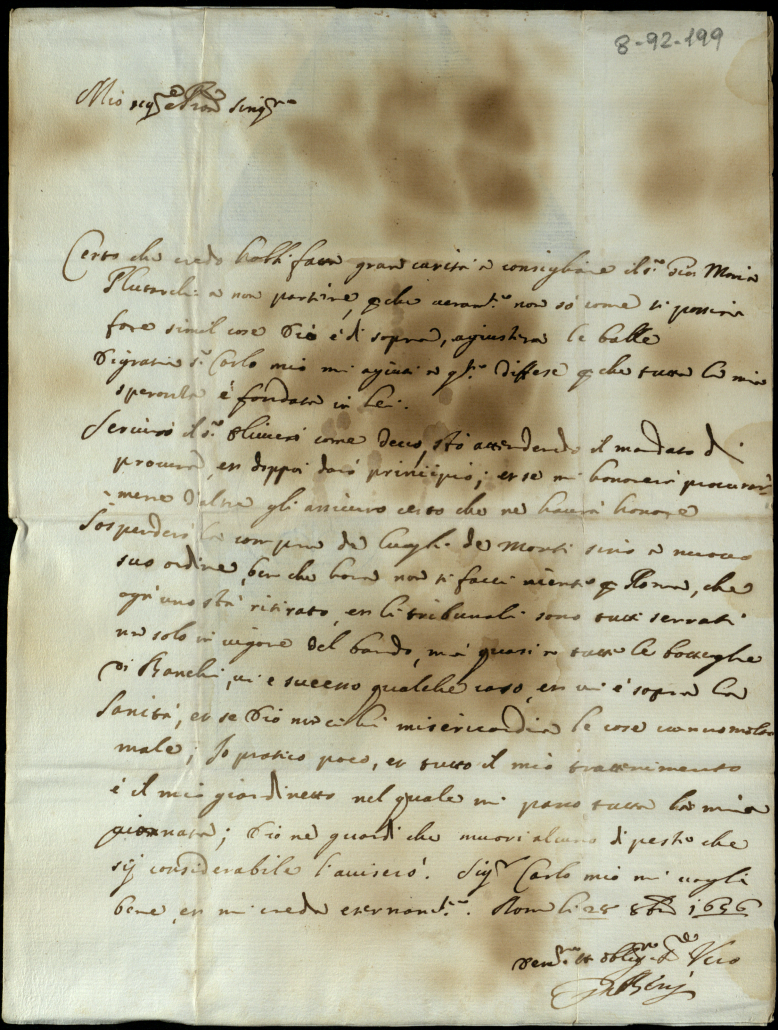 8-92-199
Mio sig.re e Pron sing.mo
Certo che credo habbi fatta gran carità a consigliare il s.r Gio Maria
Plutarchi a non partire, p che veram.te non só come si possin
fare simil cose Dio é di sopra, agiusterà le balle
Di gratia s.r Carlo mio mi agiuti a q.te diffese p che tutta la mia
speranza é fondata in lei.
Servirò il s.r Olivieri come devo, stó attendendo il mandato di
procura, et doppoi daró principio; et se mi honorerà procurar
mene d'altre gli assicuro certo che ne haverà honore
Sospenderó la compra de luoghi de Monti sino a nuovo
suo ordine, ben che hora non si facci niente p Roma, che
ogn'uno stá ritirato, et li tribunali sono tutti serrati
non solo in vigore del bando, má quasi a tutte le botteghe
di Banchi, vi e sucesso qualche caso, et vi é sopra la
Sanità, et se Dio non ci hà misericordia le cose vanno molto
male; Io pratico poco, et tutto il mio trattenimento
é il mio giardinetto nel quale mi passo tutta la mia
giornata; Dio ne guardi che muori alcuno di peste che
sij considerabile l'avviseró. Sig.r Carlo mio mi voglia
bene, et mi creda eternam.te. Roma li 28 8bre 1656
Dev.mo et oblig.mo Ser.re Vero